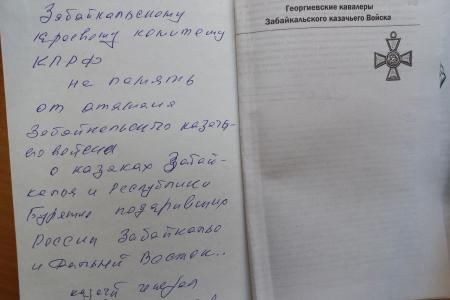 Забайкальскому
краевому комитету
КПРФ
на память
от атамана
Забайкальского казачь-
его войска
о казаках Забай-
калья и Республики
Бурятия подаривших
России Забайкалье
и Дальний Восток..
казачий генерал
Георгиевские кавалеры
Забайкальского казачьего Войска